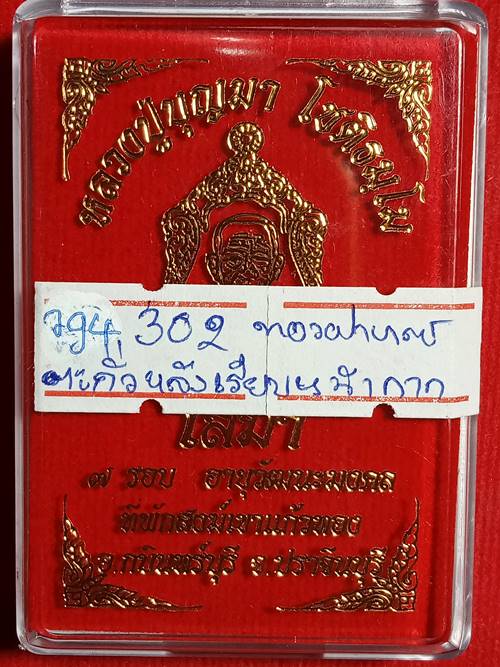 หลวงปู่บุญมา โชติธมฺโม
302
ตะกั่วหลังเรียบหน้ากาก
เสมา
๗ รอบ อายุวัฒนะมงคล
ที่พักสงฆ์เขาแก้วทอง
อ.กบินทร์บุรี จ.ปราจีนบุรี